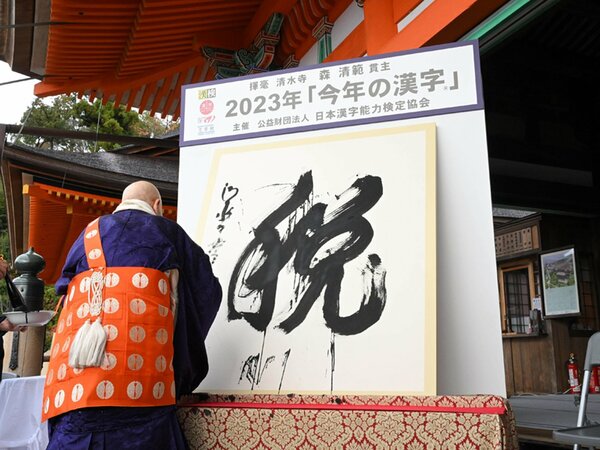 揮毫 清水寺 森 清範 貫主
2023年「今年の漢字」
主催 公益財団法人 日本漢字能力検定協会
税